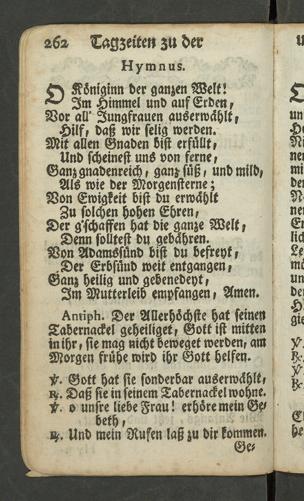 262 Tagzeiten zu der
Hymnus.
O Königinn der ganzen Welt!
Im Himmel und auf Erden,
Vor all' Jungfrauen auserwählt,
Hilf, daß wir selig werden.
Mit allen Gnaden bist erfüllt,
Und scheinest uns von ferne,
Ganz gnadenreich, ganz süß, und mild,
Als wie der Morgensterne;
Von Ewigkeit bist du erwählt
Zu solchen hohen Ehren,
Der g'schaffen hat die ganze Welt,
Denn solltest du gebähren.
Von Adamssünd bist du befreyt,
Der Erbsünd weit entgangen,
Ganz heilig und gebenedeyt,
Im Mutterleib empfangen, Amen.
Antiph. Der Allerhöchste hat seinen
Tabernackel geheiliget, Gott ist mitten
in ihr, sie mag nicht beweget werden, am
Morgen frühe wird ihr Gott helfen.
℣. Gott hat sie sonderbar auserwählt,
℟. Daß sie in seinem Tabernackel wohne.
℣. o unsre liebe Frau! erhöre mein Ge-
beth,
℟. Und mein Rufen laß zu dir kommen.
Ge-